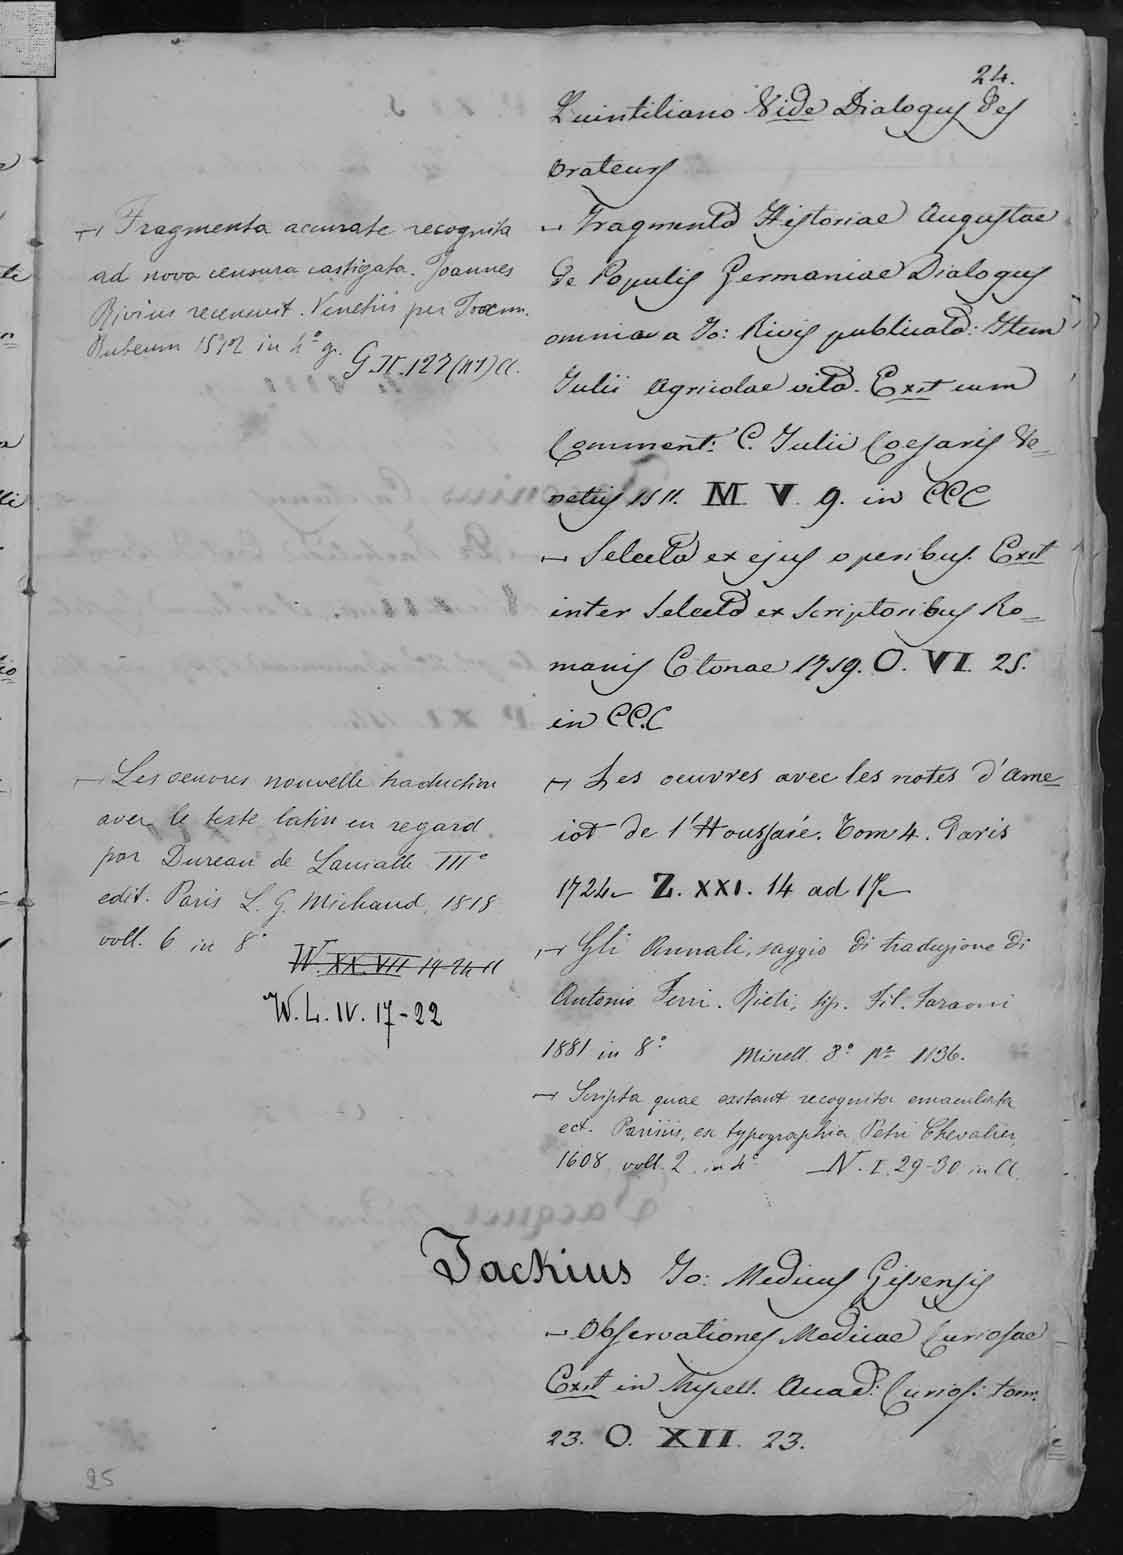 24.
Quintiliano Vide Dialogus des
orateurs
— Fragmenta Historiae Augustae
de Populis Germaniae Dialogus
omnia a Jo: Rivis publicata: Item
Julii Agricolae vita. Exst cum
Comment: C. Julii Coesaris Ve=
netiis 1511. M. V. 9. in CCC
— Selecta ex ejus operibus. Exst
inter Selecta ex Scriptoribus Ro=
manis Etonae 1719. O. VI. 25.
in CC.C
— Les oeuvres avec les notes d'Ame=
iot de l'Houssaié. Tom 4. Paris
1724 Z. XXI. 14 ad 17
— Gli Annali, saggio di traduzione di
Antonio Ferri. Rieti, tip. Fil. Faraoni
1881 in 8º Miscell. 8º Nº 1136.
— Scripta quae exstant recognita emaculata
ect. Parisiis, ex typographia Petri Chevalier,
1608 voll. 2 in 4º N. I. 29-30 in A.
Tackius Jo: Medicus Gissensis
— Observationes Medicae Curiosae
Exst in Miscell. Acad: Curios: tom.
23. O. XII. 23.
— Fragmenta accurate recognita
ad nova censura castigata. Joannes
Rivius recensuit. Venetiis per Joann.
Rubeum 1512 in 4º g. G.
— Les oeuvres nouvelle traduction
avec le texte latin en regard
par Dureau de Lamalle IIIº
edit. Paris L. G. Michaud, 1818
voll. 6 in 8º
W. XX. VII 19-24
W. L. IV. 17-22
25